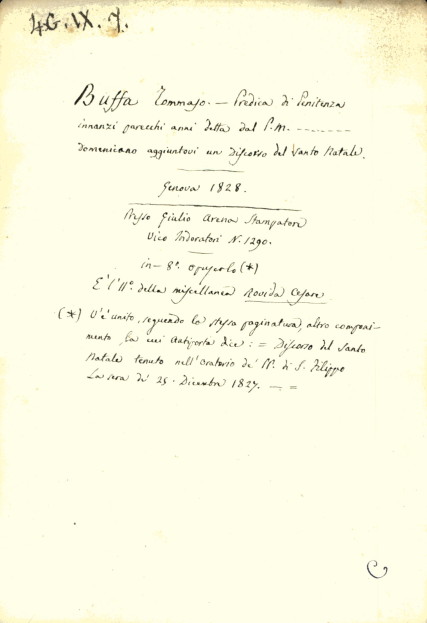 4G. IX. 7.
Buffa Tommaso. — Predica di Penitenza
innanzi parecchi anni detta dal P. M. --------
Domenicano aggiuntovi un Discorso del Santo Natale.
Genova 1828.
Presso Giulio Arena Stampatore
Vico Indoratori N. 1290.
in-8º opuscolo (*)
È l'11º della miscellanea Rovida Cesare
(*) V'è unito, seguendo la stessa paginatura, altro componi-
mento la cui Antiporta dice: = Discorso del Santo
Natale tenuto nell'Oratorio de' PP. di S. Filippo
La sera de' 25 Dicembre 1827. — =